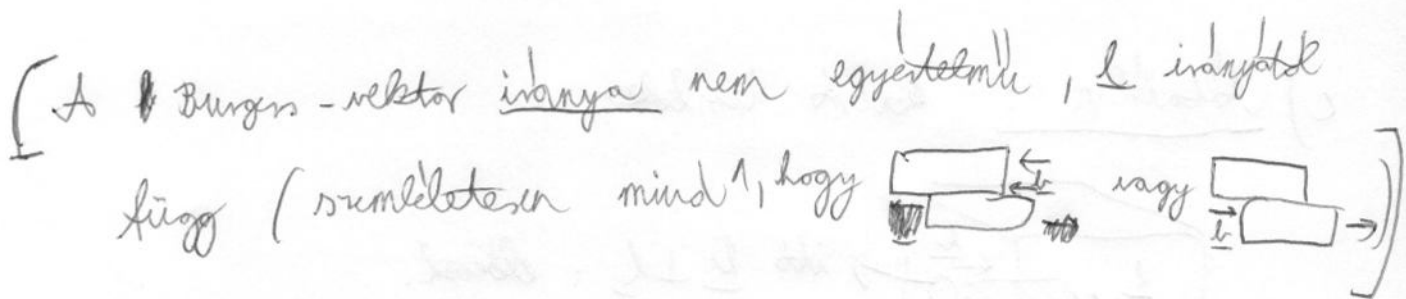 [A Burgers-vektor iránya nem egyértelmű, l irányától
függ (szemléletesen mind1, hogy b vagy b)]